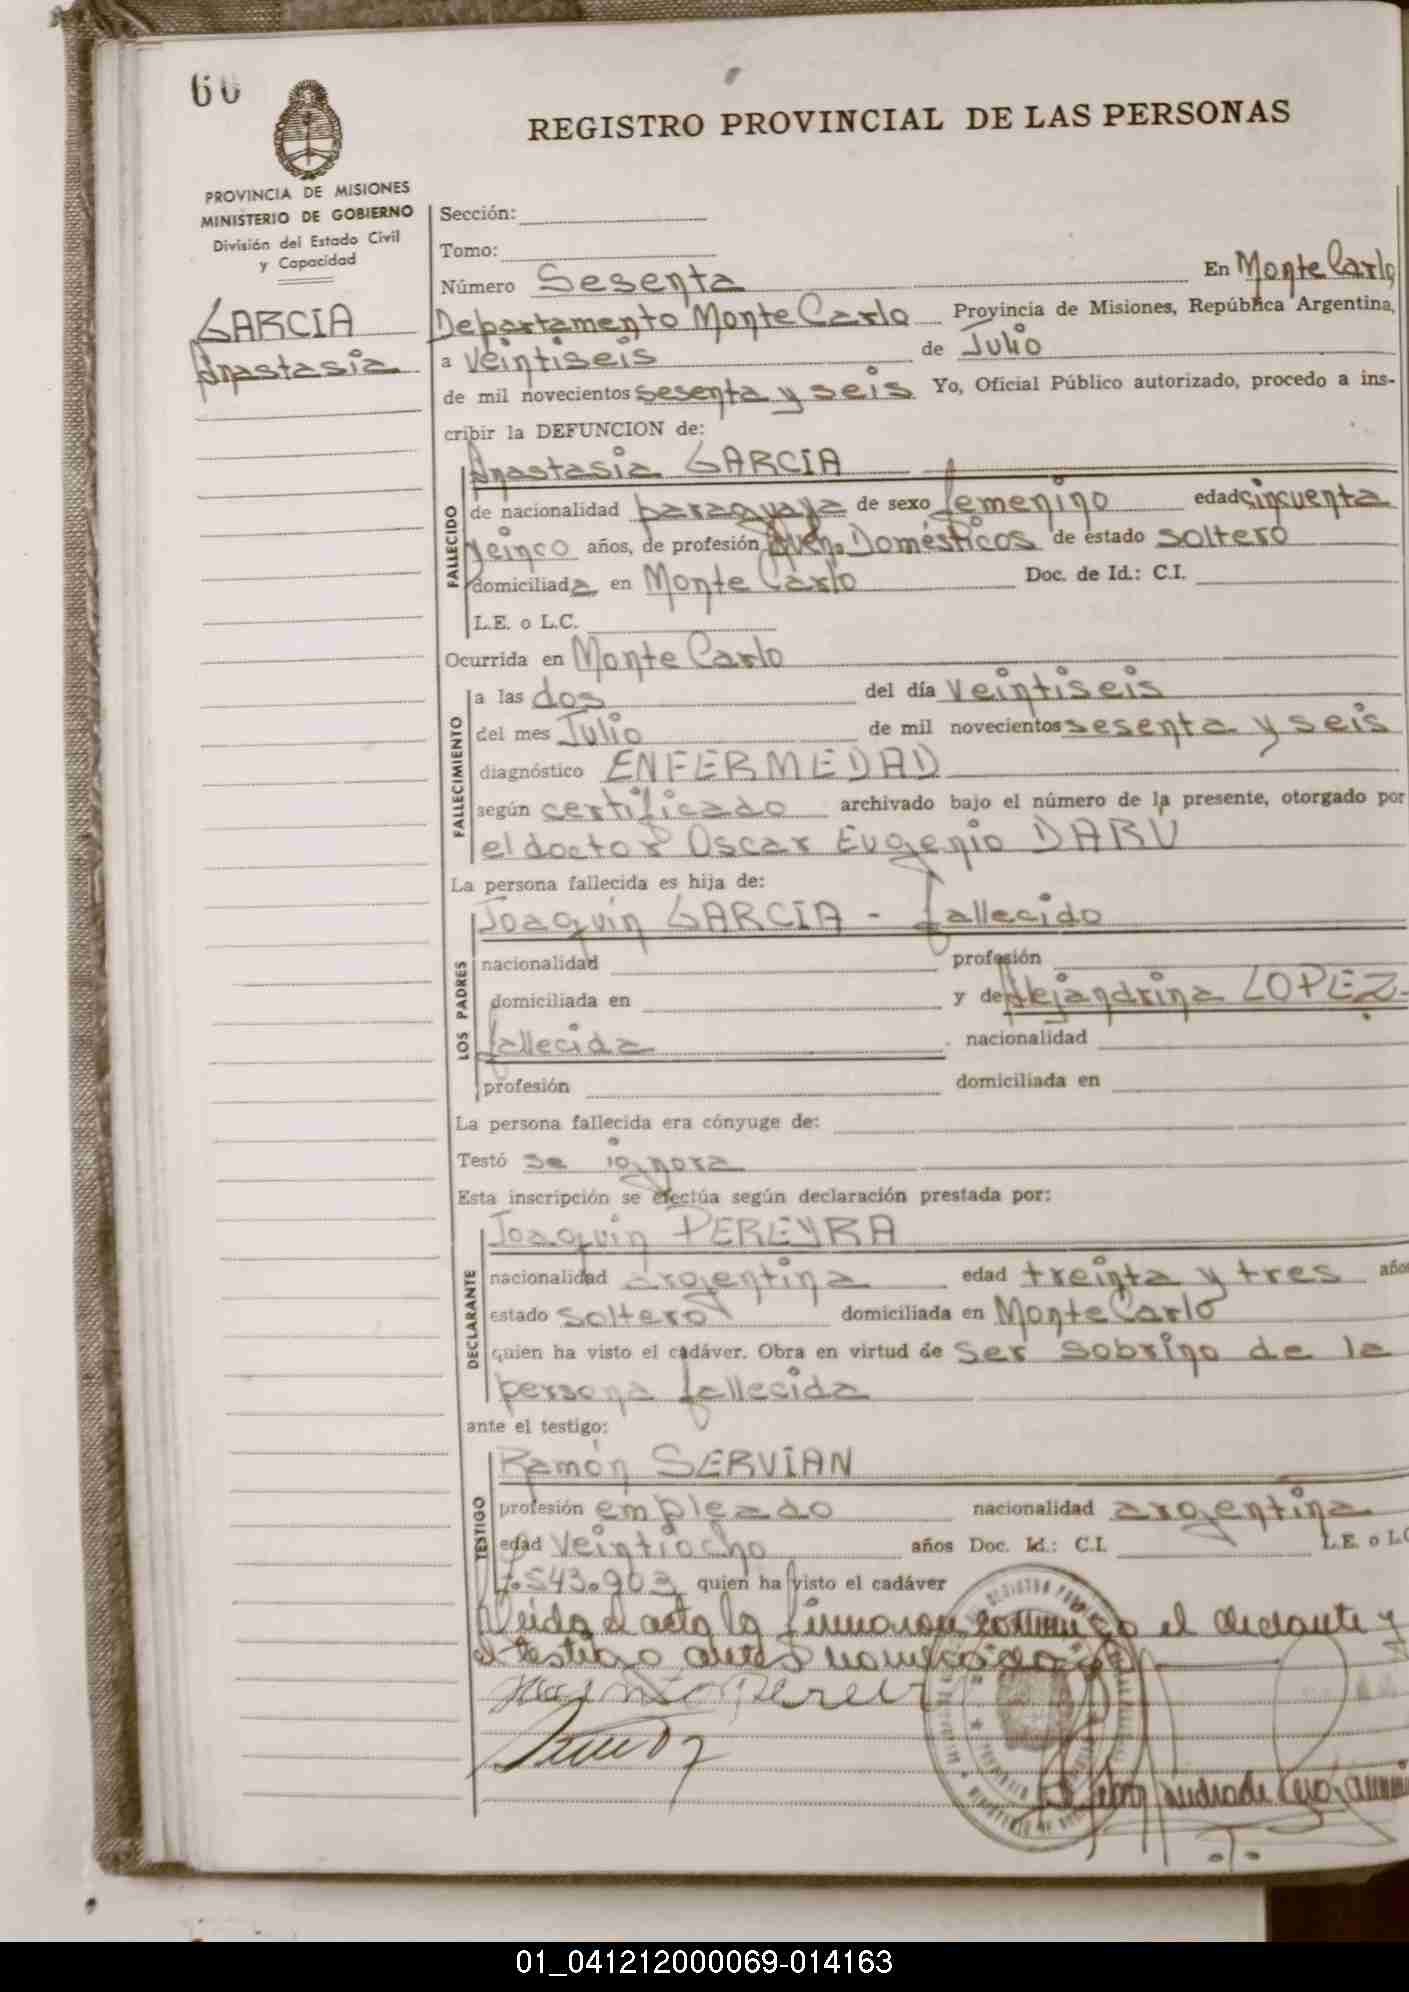 60
REGISTRO PROVINCIAL DE LAS PERSONAS
PROVINCIA DE MISIONES
MINISTERIO DE GOBIERNO
División del Estado Civil
y Capacidad
GARCIA
Anastasia
Sección:
Tomo:
Número Sesenta En Monte Carlo,
Departamento Monte Carlo Provincia de Misiones, República Argentina,
a veintiseis de Julio
de mil novecientos sesenta y seis Yo, Oficial Público autorizado, procedo a ins-
cribir la DEFUNCION de:
FALLECIDO
Anastasia GARCIA
de nacionalidad paraguaya de sexo femenino edad cincuenta
y cinco años, de profesión Domésticos de estado soltero
domiciliada en Monte Carlo Doc. de Id.: C.I.
L.E. o L.C.
Ocurrida en Monte Carlo
FALLECIMIENTO
a las dos del día veintiseis
del mes Julio de mil novecientos sesenta y seis
diagnóstico ENFERMEDAD
según certificado archivado bajo el número de la presente, otorgado por
el doctor Oscar Eugenio DARU
La persona fallecida es hija de:
LOS PADRES
Joaquín GARCIA - fallecido
nacionalidad profesión
domiciliada en y de Alejandrina LOPEZ-
fallecida nacionalidad
profesión domiciliada en
La persona fallecida era cónyuge de:
Testó se ignora
Esta inscripción se efectúa según declaración prestada por:
DECLARANTE
Joaquín PEREYRA
nacionalidad argentina edad treinta y tres año
estado soltero domiciliada en Monte Carlo
quien ha visto el cadáver. Obra en virtud de ser sobrino de la
persona fallecida
ante el testigo:
TESTIGO
Ramón SERVIAN
profesión empleado nacionalidad argentina
edad veintiocho años Doc. Id.: C.I. L.E. o LC
7.543.903 quien ha visto el cadáver
Leída el acta la firmaron conmigo el declarante y
el testigo antes
01_041212000069-014163